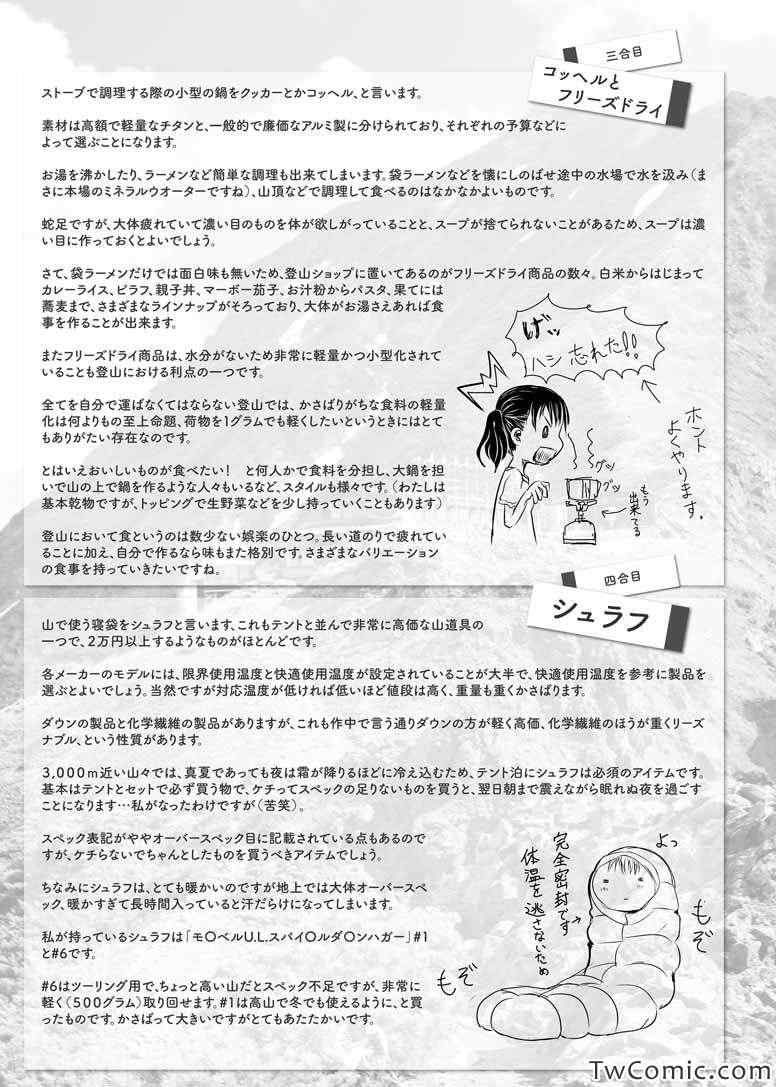 三合目
コッヘルと
フリーズドライ
ストーブで調理する際の小型の鍋をクッカーとかコッヘル、と言います。
素材は高額で軽量なチタンと、一般的で廉価なアルミ製に分けられており、それぞれの予算などに
よって選ぶことになります。
お湯を沸かしたり、ラーメンなど簡単な調理も出来てしまいます。袋ラーメンなどを懐にしのばせ途中の水場で水を汲み（ま
さに本場のミネラルウオーターですね）、山頂などで調理して食べるのはなかなかよいものです。
蛇足ですが、大体疲れていて濃い目のものを体が欲しがっていることと、スープが捨てられないことがあるため、スープは濃
い目に作っておくとよいでしょう。
さて、袋ラーメンだけでは面白味も無いため、登山ショップに置いてあるのがフリーズドライ商品の数々。白米からはじまって
カレーライス、ピラフ、親子丼、マーボー茄子、お汁粉からパスタ、果てには
蕎麦まで、さまざまなラインナップがそろっており、大体がお湯さえあれば食
事を作ることが出来ます。
またフリーズドライ商品は、水分がないため非常に軽量かつ小型化されて
いることも登山における利点の一つです。
全てを自分で運ばなくてはならない登山では、かさばりがちな食料の軽量
化は何よりもの至上命題、荷物を1グラムでも軽くしたいというときにはとて
もありがたい存在なのです。
とはいえおいしいものが食べたい！　と何人かで食料を分担し、大鍋を担
いで山の上で鍋を作るような人々もいるなど、スタイルも様々です。（わたしは
基本乾物ですが、トッピングで生野菜などを少し持っていくこともあります）
登山において食というのは数少ない娯楽のひとつ。長い道のりで疲れてい
ることに加え、自分で作るなら味もまた格別です。さまざまなバリエーション
の食事を持っていきたいですね。
げッ
ハシ忘れた!!
ホント
よくやります。
グッ
グッ
もう
出来てる
四合目
シュラフ
山で使う寝袋をシュラフと言います、これもテントと並んで非常に高価な山道具の
一つで、2万円以上するようなものがほとんどです。
各メーカーのモデルには、限界使用温度と快適使用温度が設定されていることが大半で、快適使用温度を参考に製品を
選ぶとよいでしょう。当然ですが対応温度が低ければ低いほど値段は高く、重量も重くかさばります。
ダウンの製品と化学繊維の製品がありますが、これも作中で言う通りダウンの方が軽く高価、化学繊維のほうが重くリーズ
ナブル、という性質があります。
3,000m近い山々では、真夏であっても夜は霜が降りるほどに冷え込むため、テント泊にシュラフは必須のアイテムです。
基本はテントとセットで必ず買う物で、ケチってスペックの足りないものを買うと、翌日朝まで震えながら眠れぬ夜を過ごす
ことになります…私がなったわけですが（苦笑）。
スペック表記がややオーバースペック目に記載されている点もあるので
すが、ケチらないでちゃんとしたものを買うべきアイテムでしょう。
ちなみにシュラフは、とても暖かいのですが地上では大体オーバースペ
ック、暖かすぎて長時間入っていると汗だらけになってしまいます。
私が持っているシュラフは「モ〇ベルU.L.スパイ〇ルダ〇ンハガー」#1
と#6です。
#6はツーリング用で、ちょっと高い山だとスペック不足ですが、非常に
軽く（500グラム）取り回せます。#1は高山で冬でも使えるように、と買
ったものです。かさばって大きいですがとてもあたたかいです。
完全密封です
体温を逃さないため
よっ
もぞ
もぞ
TwComic.com